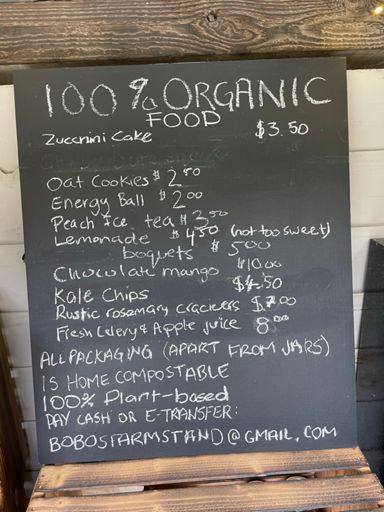 100% ORGANIC
FOOD
Zucchini Cake $3.50
Oat Cookies $2.50
Energy Ball $2.00
Peach Ice tea $3.50
Lemonade $4.50 (not too sweet)
boquets $5.00
Chocolate mango $10.00
Kale Chips $4.50
Rustic rosamary crackers $7.00
Fresh Celery & Apple juice 8.00
ALL PACKAGING (APART FROM JARS)
IS HOME COMPOSTABLE
100% Plant-based
PAY CASH OR E-TRANSFER:
BOBOSFARMSTAND@GMAIL.COM